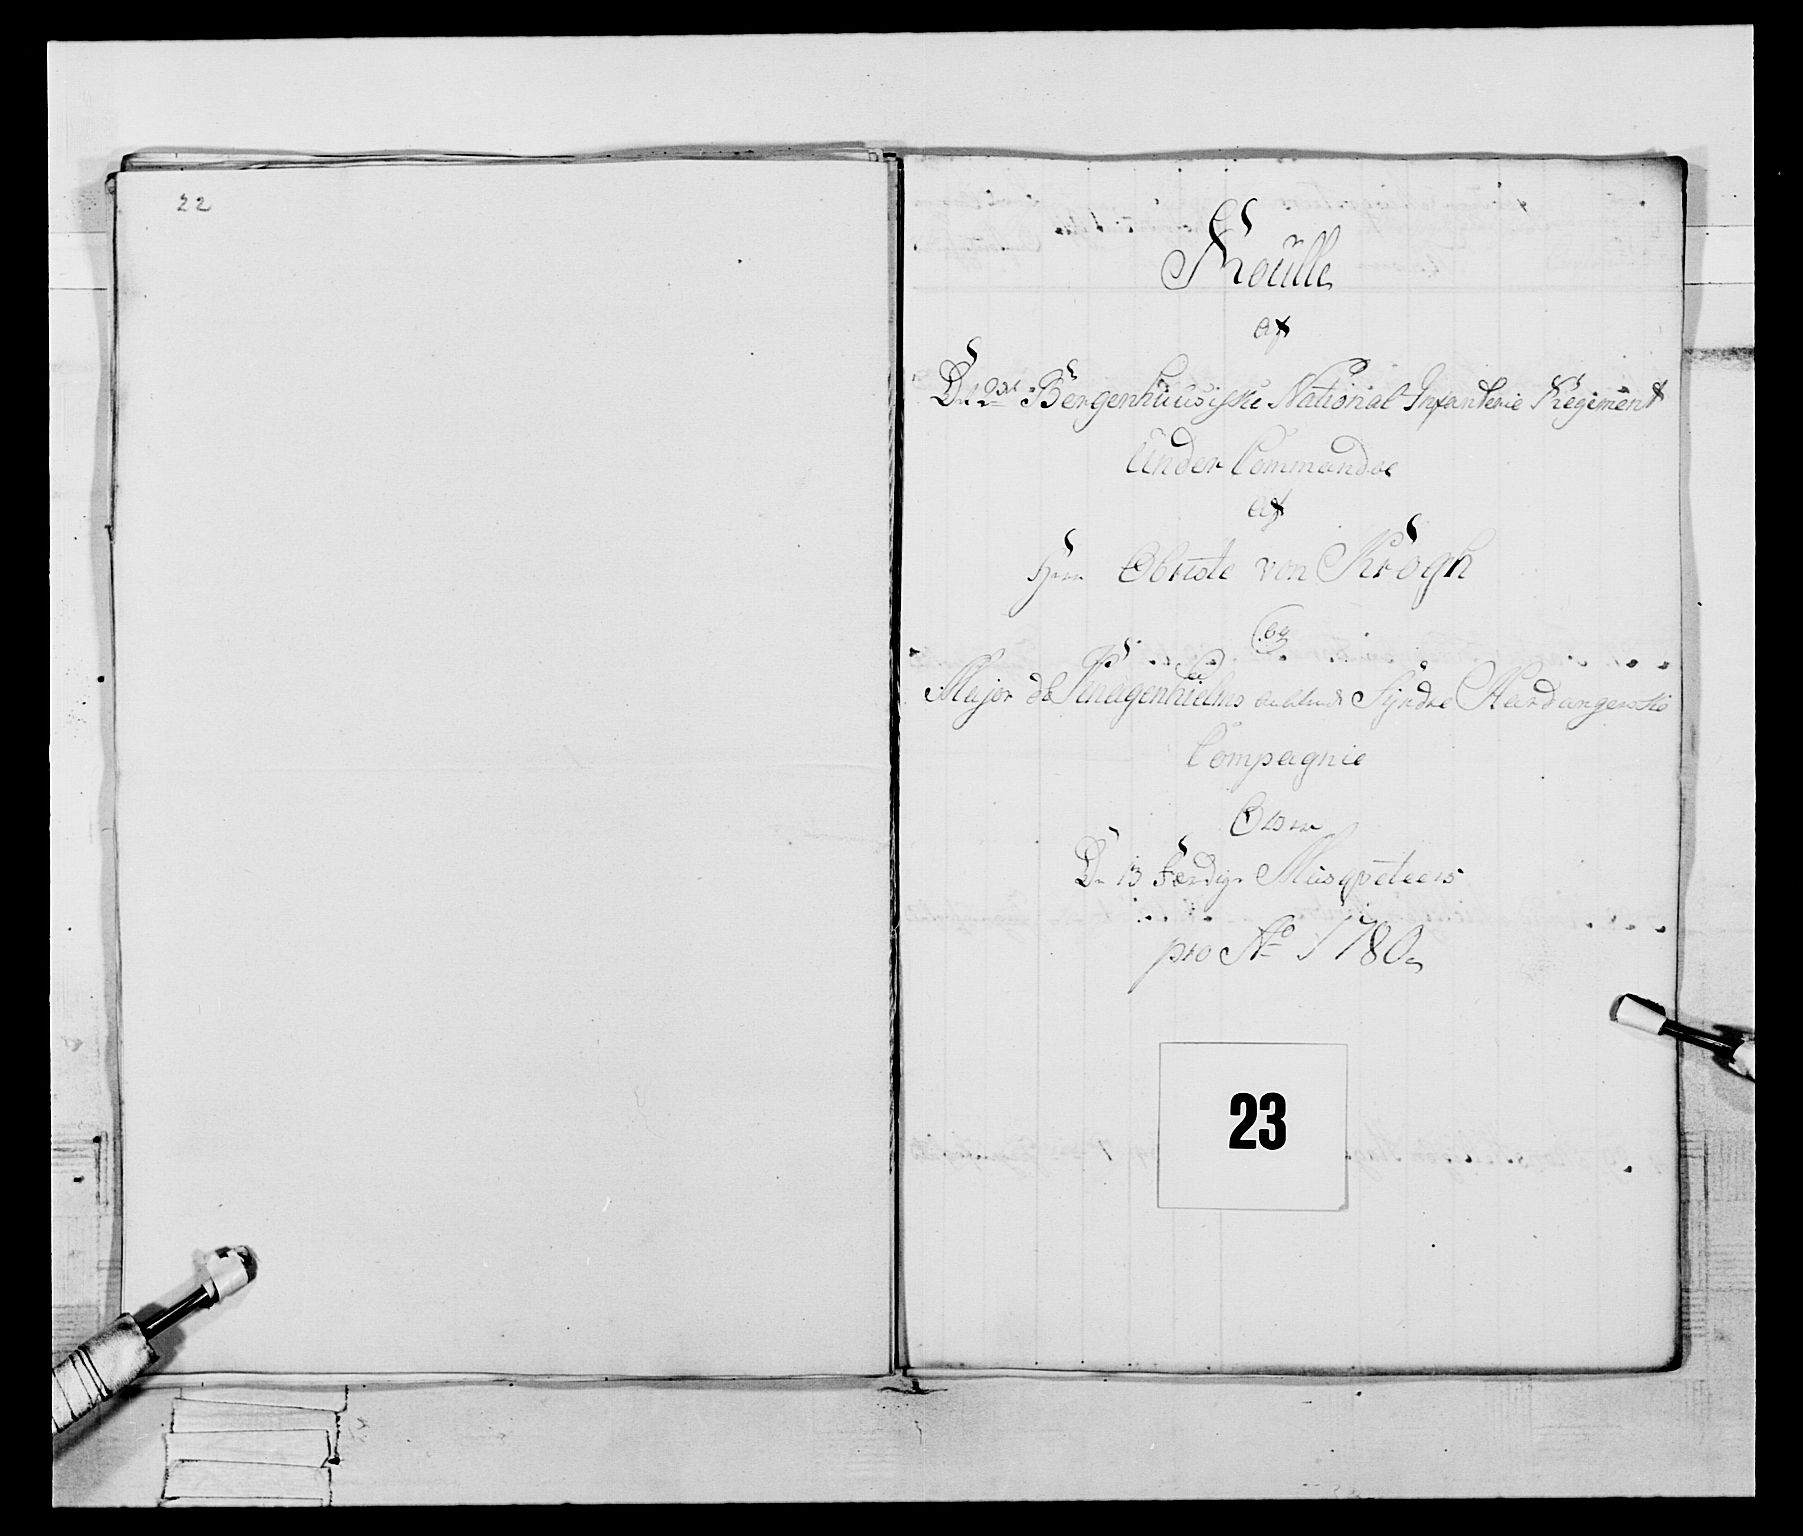 22
Roulle
af
Det 2det Bergenhuusiske National Infanterie Regiment
Under Commando
af
Herr Obriste von Krogh
og
Major de Knagenhielms Syndre Hardangerske
Compagnie
Over
De 13 Færdige Musqveteers
pro Ao 1780
23